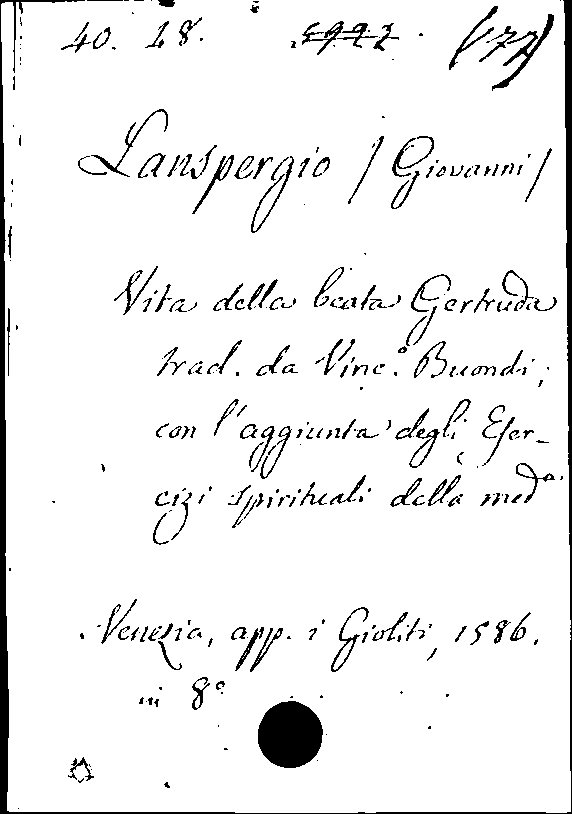 40. 18. (177)
Lanspergio / Giovanni /
Vita della beata Gertruda
trad. da Vinc.º Buondi;
con l'aggiunta degli Eser-
cizi spirituali della medª.
Venezia, app. i Gioliti, 1586.
in 8º